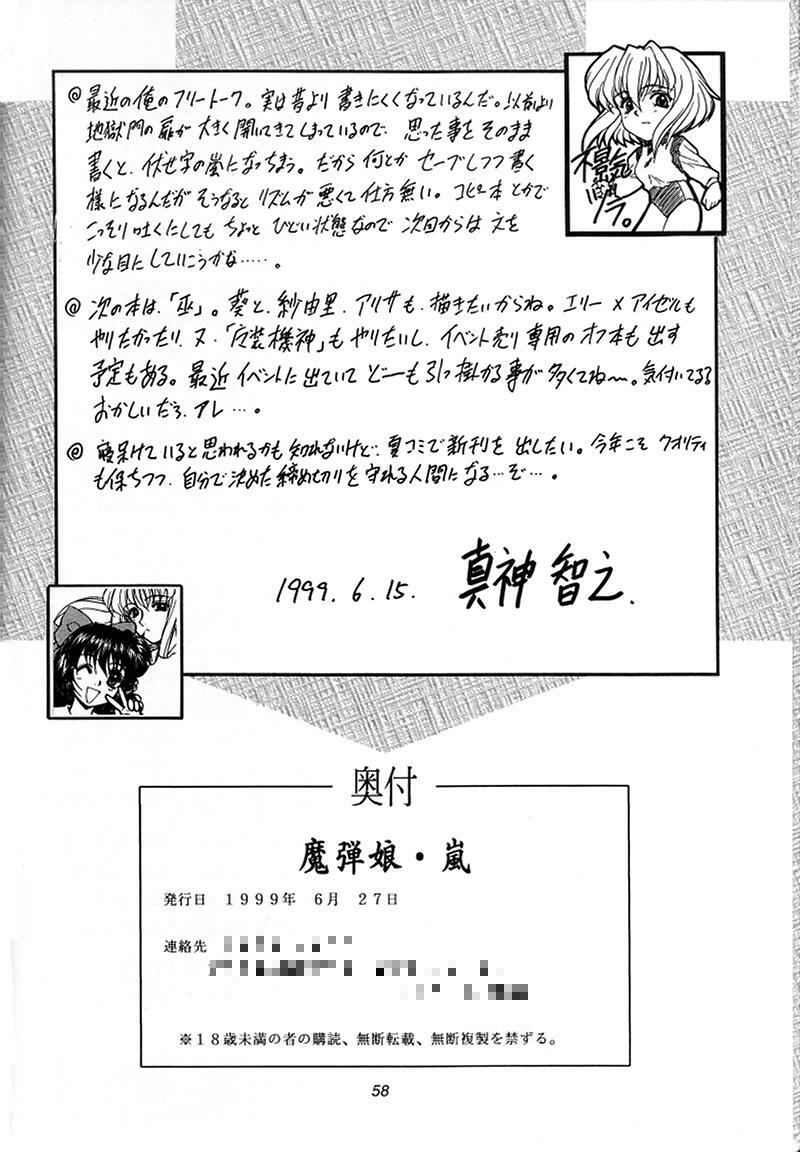 @ 最近の俺のフリートーク。実は昔より書きにくくなっているんだ。以前より
地獄門の扉が大きく開いてきてしまっているので 思った事をそのまま
書くと、伏せ字の嵐になっちまう。だから何とか セーブしつつ書く
様になるんだがそうなるとリズムが悪くて仕方無い。コピー本とかで
こっそり吐くにしても ちょっと ひどい状態なので 次回からは 文を
少な目にしていこうかな……。
景気
ばれ
@ 次の本は、「巫」。葵と、紗由里、アリサも、描きたいからね。エリー×アイゼルも
やりたかったり、又、「装機神」もやりたいし、イベント売り専用のオフ本も出す
予定もある。最近イベントに出ていて どーも引っ掛かる事が多くてね〜。気付いてるる
おかしいだろ、アレ…。
@ 寝呆けていると思われるかも知れないけど、夏コミで新刊を出したい。今年こそ クオリティ
も保ちつつ、自分で決めた締め切りを守れる人間になる…ぞ…。
1999.6.15. 真神 智之.
奥付
魔弾娘・嵐
発行日 1999年 6月 27日
連絡先
※18歳未満の者の購読、無断転載、無断複製を禁ずる。
58